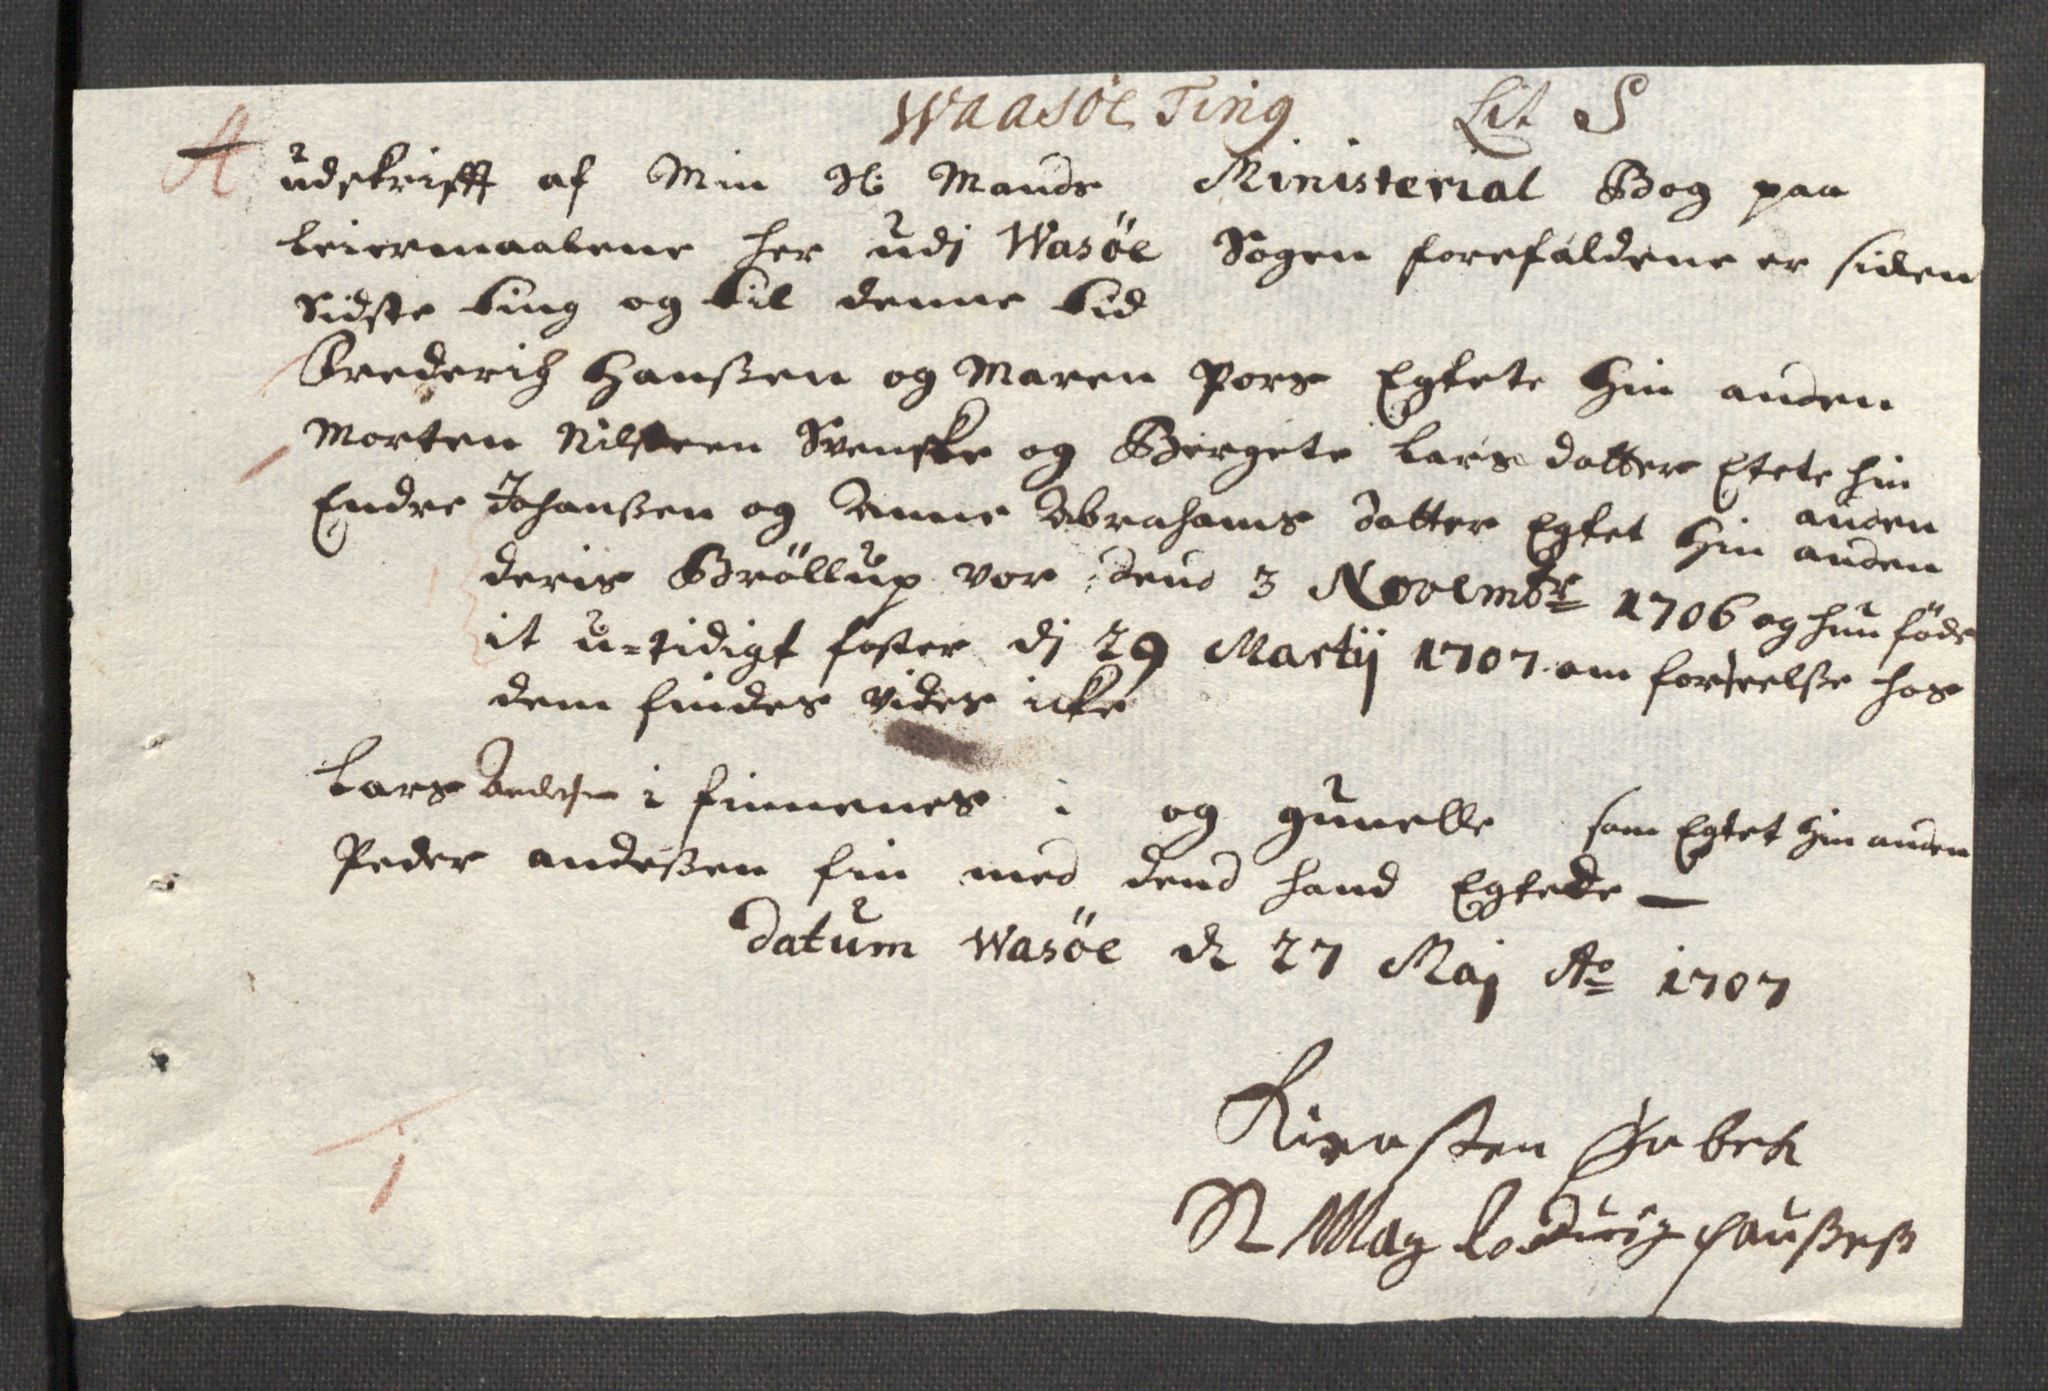 Waasöe Ting Lit S
A
udskrifft af Min Sl: Mands Ministerial Bog paa
leiermaalene her udj Wasöe Sogen forefaldene er siden
Sidste ting og til denne tid
Frederich Hanßen og Maren Pors Egtete hin anden
Morten Nilsen Svenske og Bergete Lars datter Etete hin
anden
Endre Johanßen og Anne Abrahams datter Egtet hin anden
deris Bröllup vor dend 3 Novembr 1706 og hun föde
it u=tidigt foster dj 29 Martij 1707 om forseelße hos
dem findes vides icke
Lars i finnenes : og gunelle som Egtet hin anden
Peder andeßen fin med dend hand Egtede —
Datum Wasöe d 27 Maj Ao 1707
Kirsten
Sl Mag Lodvig Haußes
1